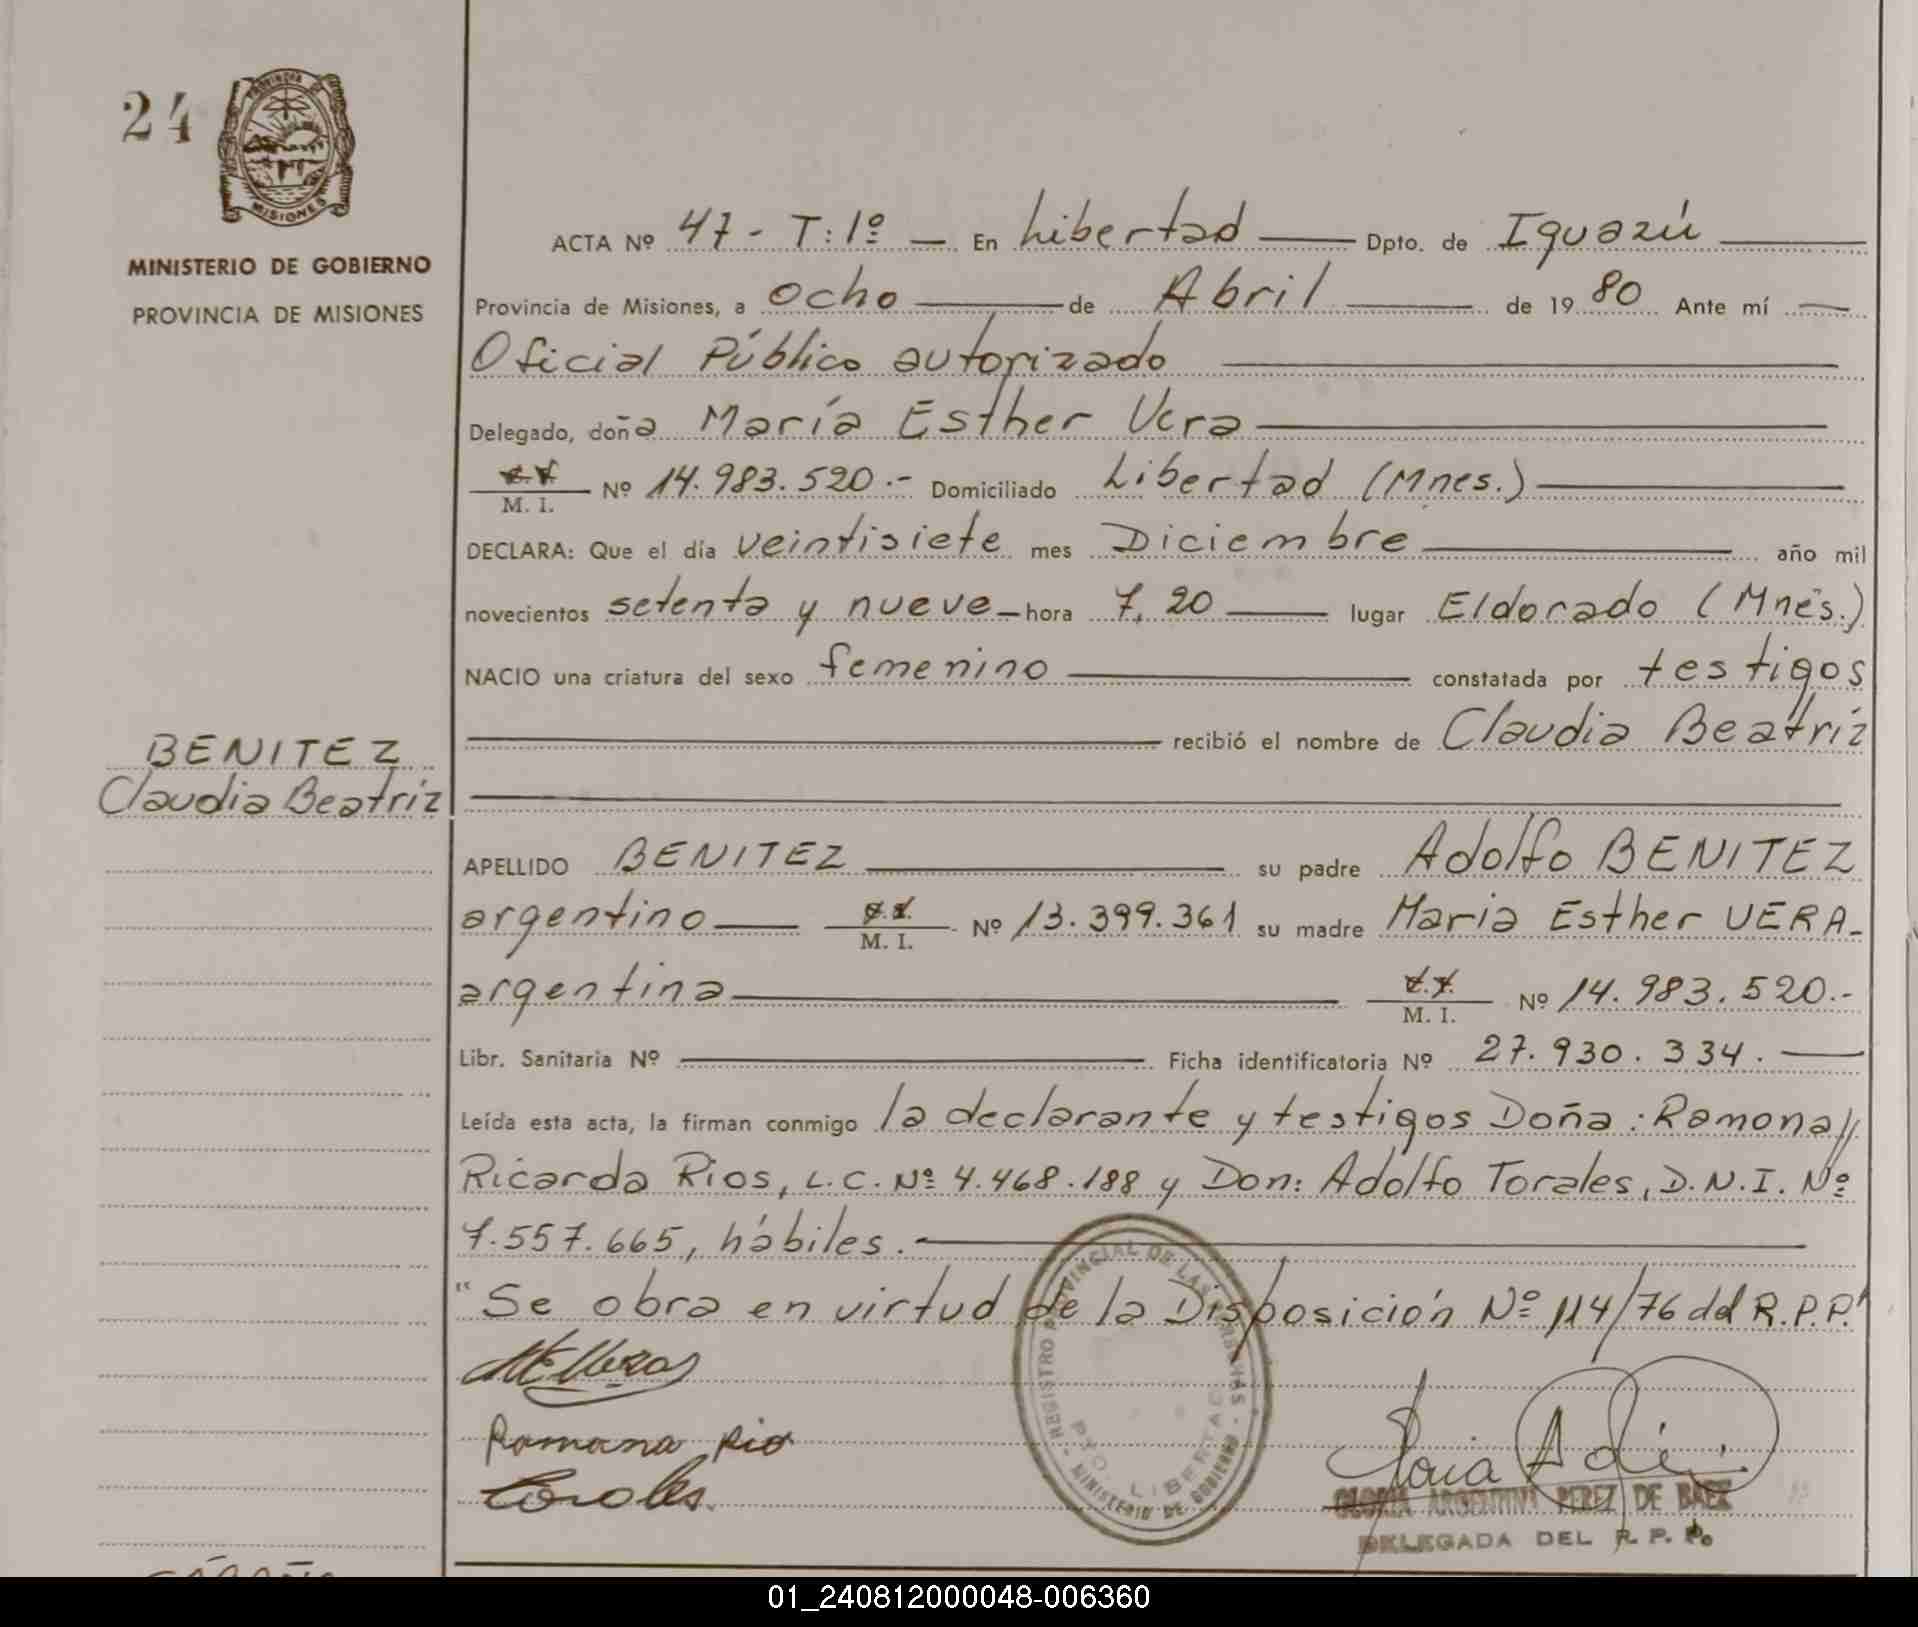 24
PROVINCIA DE
MISIONES
MINISTERIO DE GOBIERNO
PROVINCIA DE MISIONES
ACTA Nº 47 - T: 1º — En Libertad — Dpto. de Iguazú
Provincia de Misiones, a ocho de Abril de 19 80 Ante mí
Oficial Público autorizado
Delegado, doña María Esther Vera
M. I. Nº 14.983.520.- Domiciliado Libertad (Mnes.)
DECLARA: Que el día veintisiete mes Diciembre año mil
novecientos setenta y nueve — hora 7,20 lugar Eldorado (Mnes.)
NACIO una criatura del sexo femenino constatada por testigos
recibió el nombre de Claudia Beatríz
BENITEZ
Claudia Beatríz
APELLIDO BENITEZ su padre Adolfo BENITEZ
argentino M. I. Nº 13.399.361 su madre Maria Esther VERA-
argentina M. I. Nº 14.983.520.-
Libr. Sanitaria Nº Ficha identificatoria Nº 27.930.334.
Leída esta acta, la firman conmigo la declarante y testigos Doña: Ramona//
Ricarda Rios, L.C. Nº 4.468.188 y Don: Adolfo Torales, D.N.I. Nº
7.557.665, hábiles.
"Se obra en virtud de la Disposición Nº 114/76 del R.P.P."
REGISTRO PROVINCIAL DE LAS PERSONAS - MINISTERIO DE GOBIERNO -
PTO. LIBERTAD
Ramona Rio
Torales.
GLORIA ARGENTINA PEREZ DE BAEZ
DELEGADA DEL R. P. P.
01_240812000048-006360